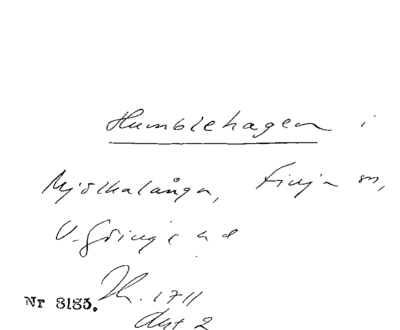 Humblehagen i
Mjölkalånga, Finja sn,
V. Göinge hd
Nr 8185. Th. 1711
Avst 2